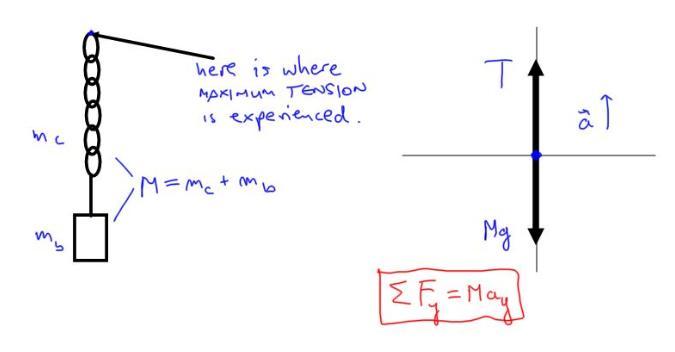 here is where
MAXIMUM TENSION
is experienced.
m_c
M = m_c + m_b
m_b
T
a⃗ ↑
Mg
ΣF_y = Ma_y